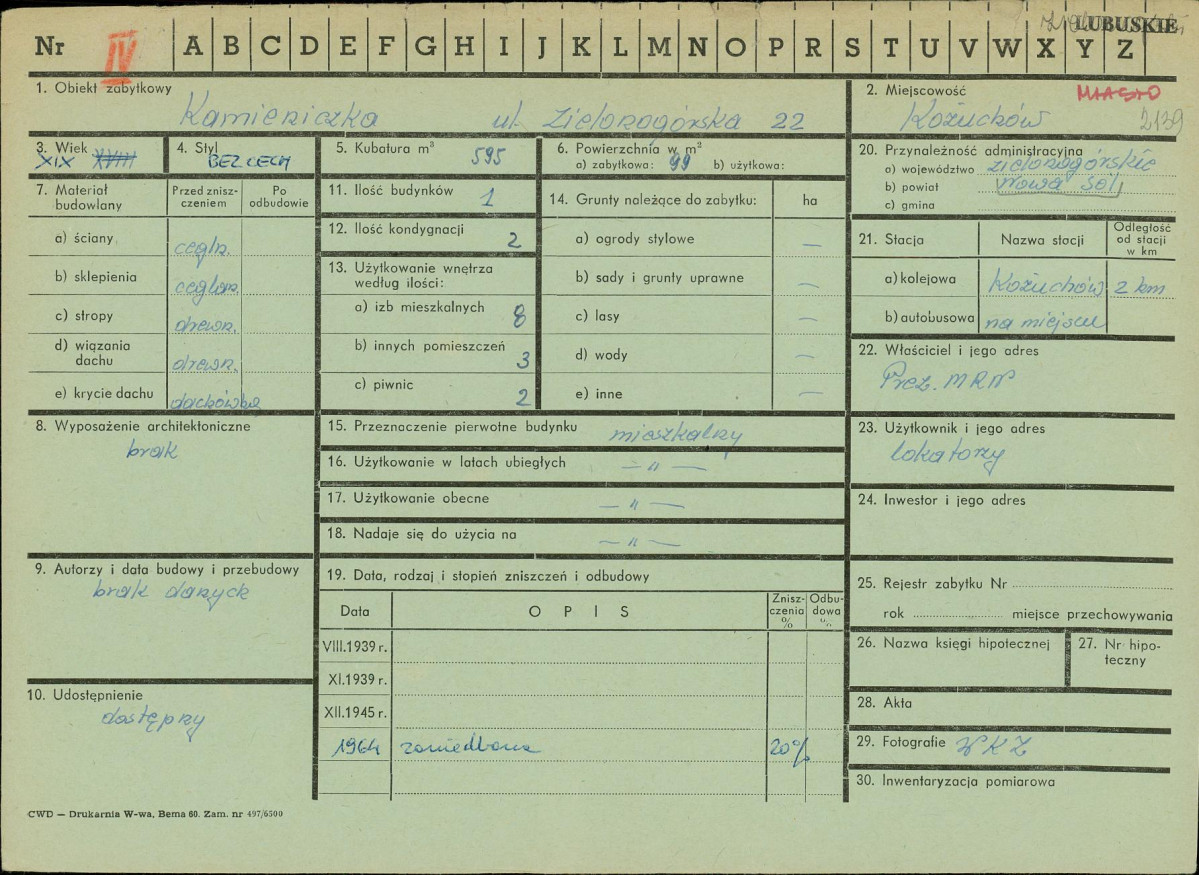 LUBUSKIE
Nr IV A B C D E F G H I J K L M N O P R S T U V W X Y Z
1. Obiekt zabytkowy
Kamieniczka ul. Zielonogórska 22
2. Miejscowość MIASTO
Kożuchów 2139
3. Wiek
XIX XVIII
4. Styl
BEZ CECH
5. Kubatura m³ 595
6. Powierzchnia w m²
a) zabytkowa: 99 b) użytkowa:
7. Materiał budowlany
Przed zniszczeniem
Po odbudowie
a) ściany cegln.
b) sklepienia ceglan.
c) stropy drewn.
d) wiązania dachu drewn.
e) krycie dachu dachówka
8. Wyposażenie architektoniczne
brak
9. Autorzy i data budowy i przebudowy
brak danych
10. Udostępnienie
dostępny
11. Ilość budynków 1
12. Ilość kondygnacji 2
13. Użytkowanie wnętrza
według ilości:
a) izb mieszkalnych 8
b) innych pomieszczeń 3
c) piwnic 2
14. Grunty należące do zabytku: ha
a) ogrody stylowe —
b) sady i grunty uprawne —
c) lasy —
d) wody —
e) inne —
15. Przeznaczenie pierwotne budynku mieszkalny
16. Użytkowanie w latach ubiegłych — " —
17. Użytkowanie obecne — " —
18. Nadaje się do użycia na — " —
19. Data, rodzaj i stopień zniszczeń i odbudowy
Data OPIS Zniszczenia % Odbudowa %
VIII.1939 r.
XI.1939 r.
XII.1945 r.
1964 zaniedbana 20%
20. Przynależność administracyjna
a) województwo zielonogórskie
b) powiat Nowa Sól
c) gmina
21. Stacja Nazwa stacji Odległość od stacji w km
a) kolejowa Kożuchów 2 km
b) autobusowa na miejscu
22. Właściciel i jego adres
Prez. MRN
23. Użytkownik i jego adres
lokatorzy
24. Inwestor i jego adres
25. Rejestr zabytku Nr
rok miejsce przechowywania
26. Nazwa księgi hipotecznej
27. Nr hipoteczny
28. Akta
29. Fotografie WKZ
30. Inwentaryzacja pomiarowa
CWD — Drukarnia W-wa, Bema 60. Zam. nr 497/6500